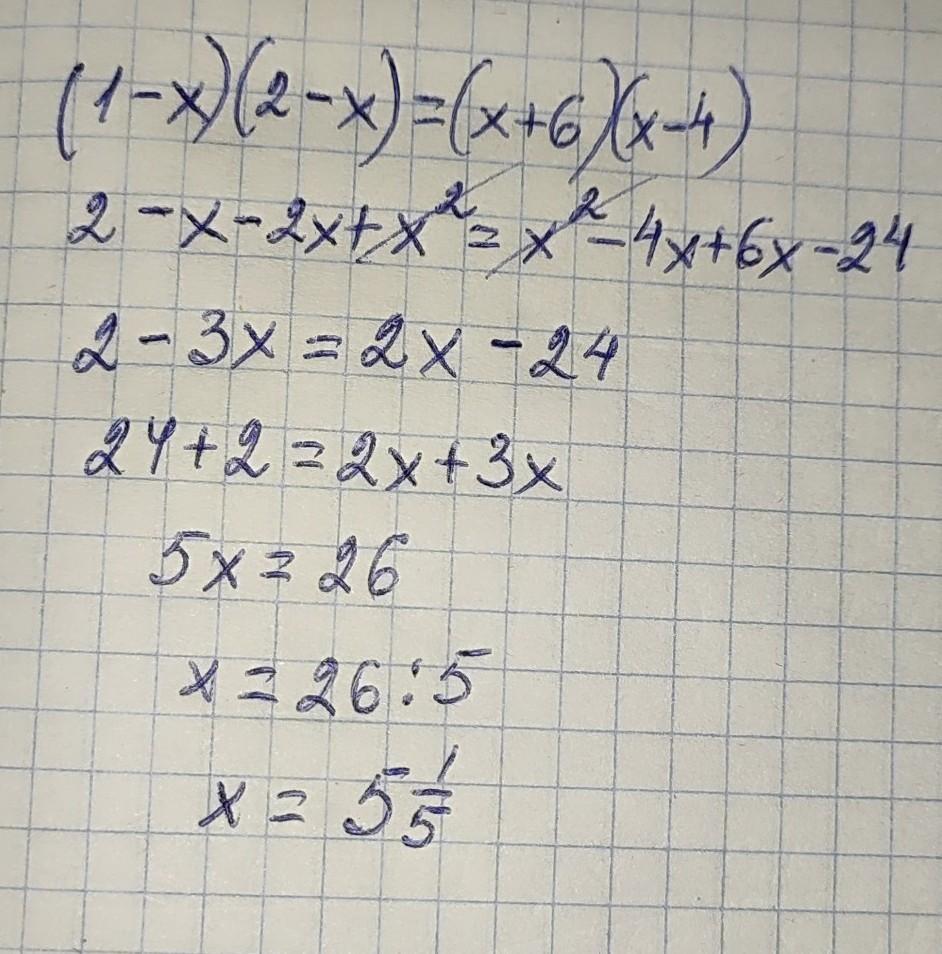 (1-x)(2-x)=(x+6)(x-4)
2-x-2x+x²=x²-4x+6x-24
2-3x=2x-24
24+2=2x+3x
5x=26
x=26:5
x=5 1/5